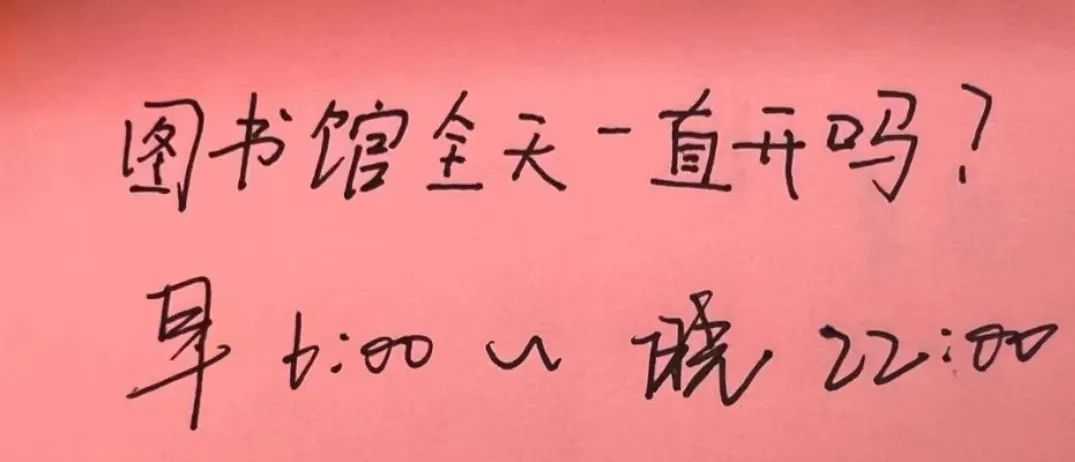 图书馆全天一直开吗?
早 6:00 ~ 晚 22:00